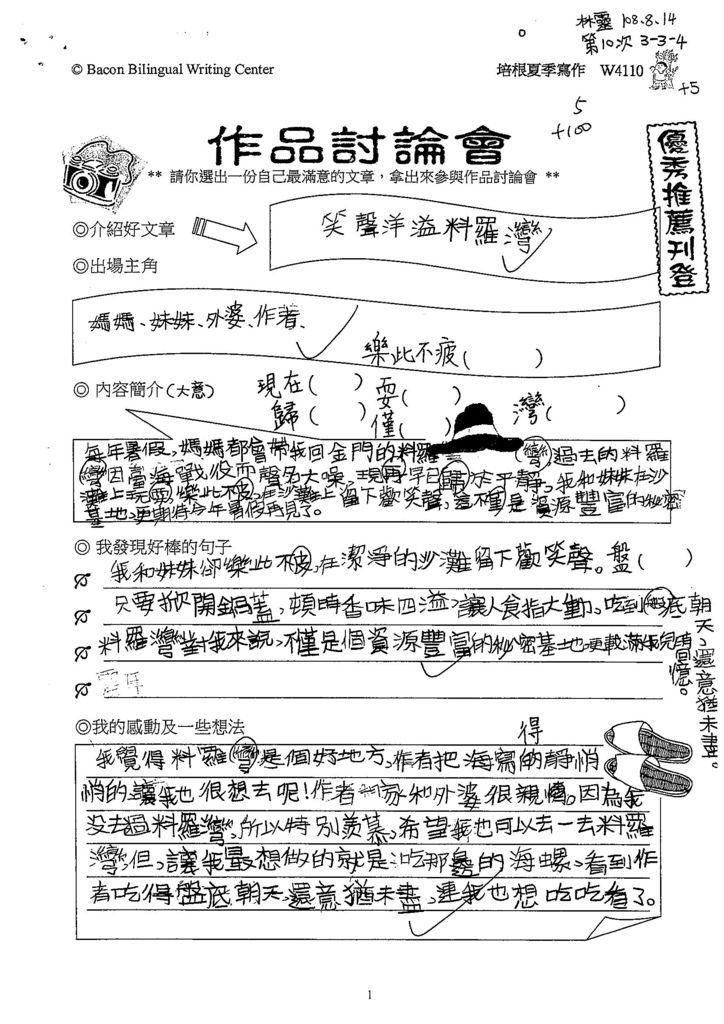 林靈 108.8.14
第10次 3-3-4
© Bacon Bilingual Writing Center
培根夏季寫作 W4110
+5
5
+100
作品討論會
優秀推薦刊登
** 請你選出一份自己最滿意的文章，拿出來參與作品討論會 **
◎介紹好文章
笑聲洋溢料羅灣
◎出場主角
媽媽、妹妹、外婆、作者、
樂此不疲( )
◎ 內容簡介(大意)
現在( ) 耍( )
歸( ) 僅( ) 灣( )
每年暑假,媽媽都會帶我回金門的料羅灣,過去的料羅
灣因當海戰役而聲名大噪,現再早已歸於平靜,我和妹妹在沙
灘上玩耍樂此不疲,在沙灘上留下歡笑聲,這不僅是資源豐富的秘密
基地,更期待今年暑假再見了。
◎ 我發現好棒的句子
我和妹妹卻樂此不疲,在潔淨的沙灘留下歡笑聲。盤( )
只要掀開鍋蓋,頓時香味四溢,讓人食指大動,吃到盤底朝天,還意猶未盡。
料羅灣對我來說,不僅是個資源豐富的秘密基地,更載滿我兒時回憶。
◎我的感動及一些想法
得
我覺得料羅灣是個好地方,作者把海寫的靜悄
悄的,讓我也很想去呢!作者一家和外婆很親情。因為我
沒去過料羅灣,所以特別羨慕,希望我也可以去一去料羅
灣,但,讓我最想做的就是吃那邊的海螺,看到作
者吃得盤底朝天,還意猶未盡,連我也想吃吃看了。
1